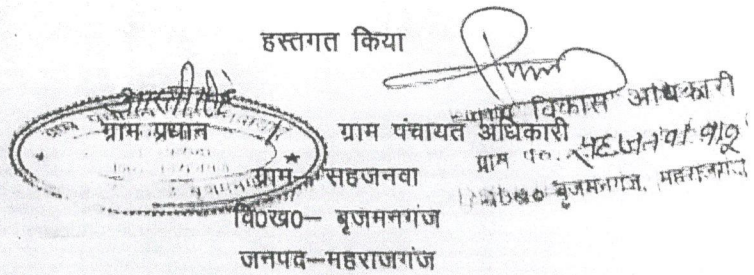 हस्तगत किया
ग्राम प्रधान
ग्राम पंचायत अधिकारी
ग्राम सहजनवा
वि0ख0– बृजमनगंज
जनपद–महराजगंज
विकास अधिकारी
ग्राम पं0 सहजनवा बाबू
बृजमनगंज, महराजगंज